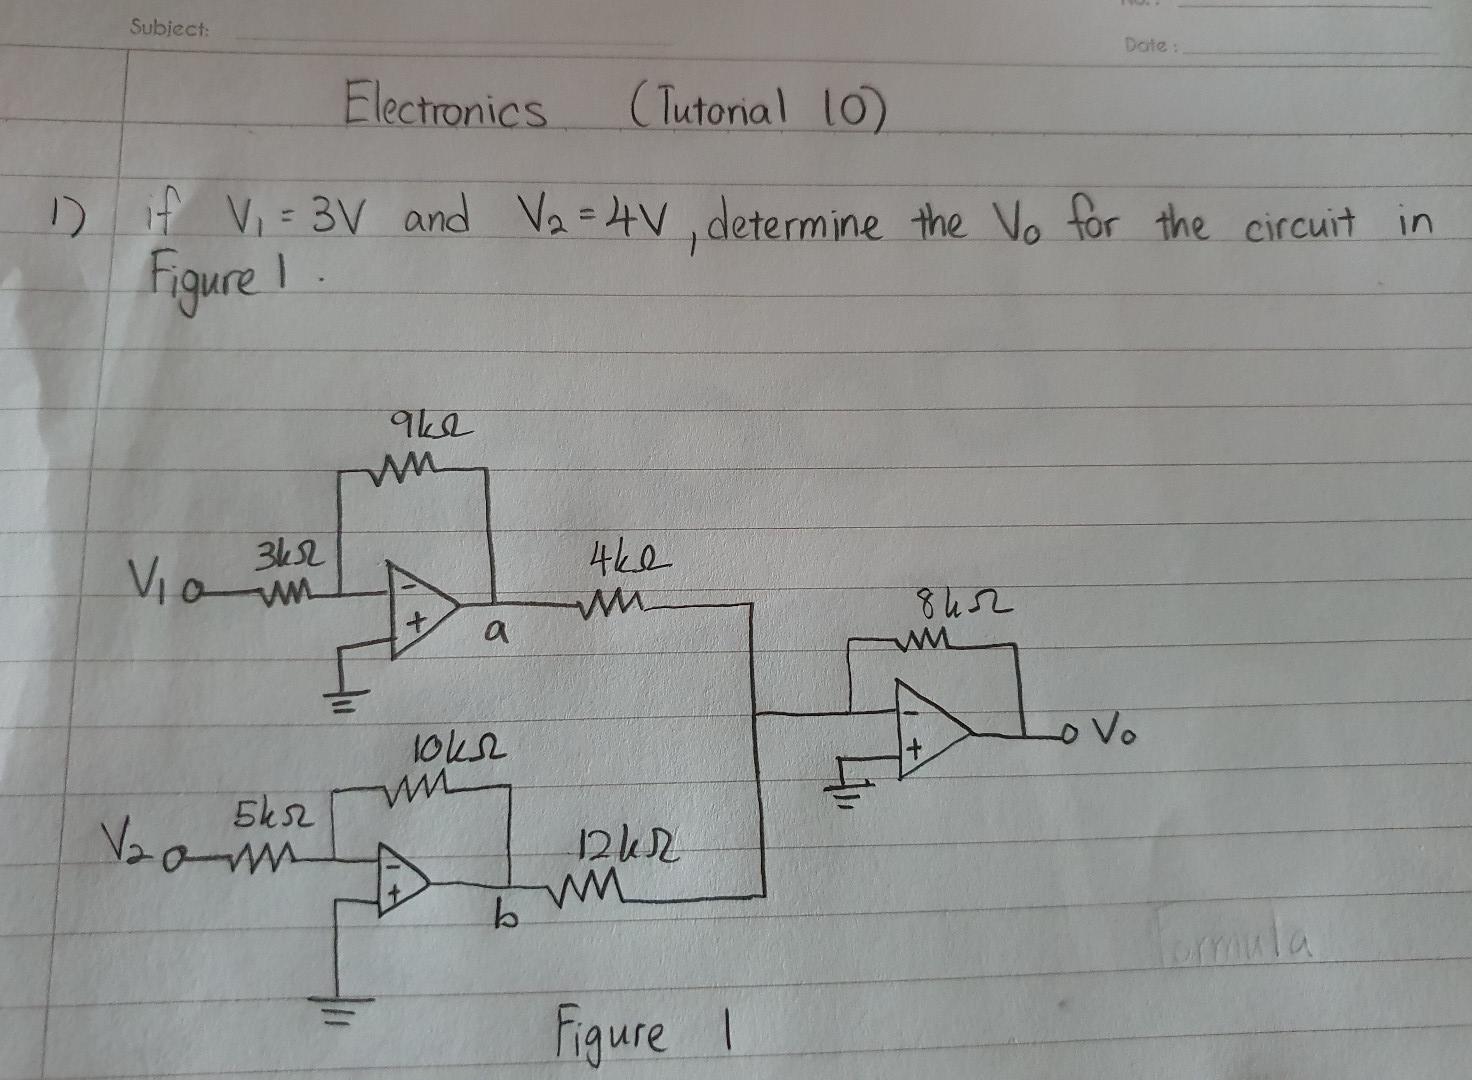 Subject:
Date:
Electronics (Tutorial 10)
1) if V₁ = 3V and V₂ = 4V, determine the Vo for the circuit in
Figure 1.
9kΩ
V₁ 3kΩ - + a 4kΩ
8kΩ
- + Vo
10kΩ
V₂ 5kΩ - + b 12kΩ
Formula
Figure 1